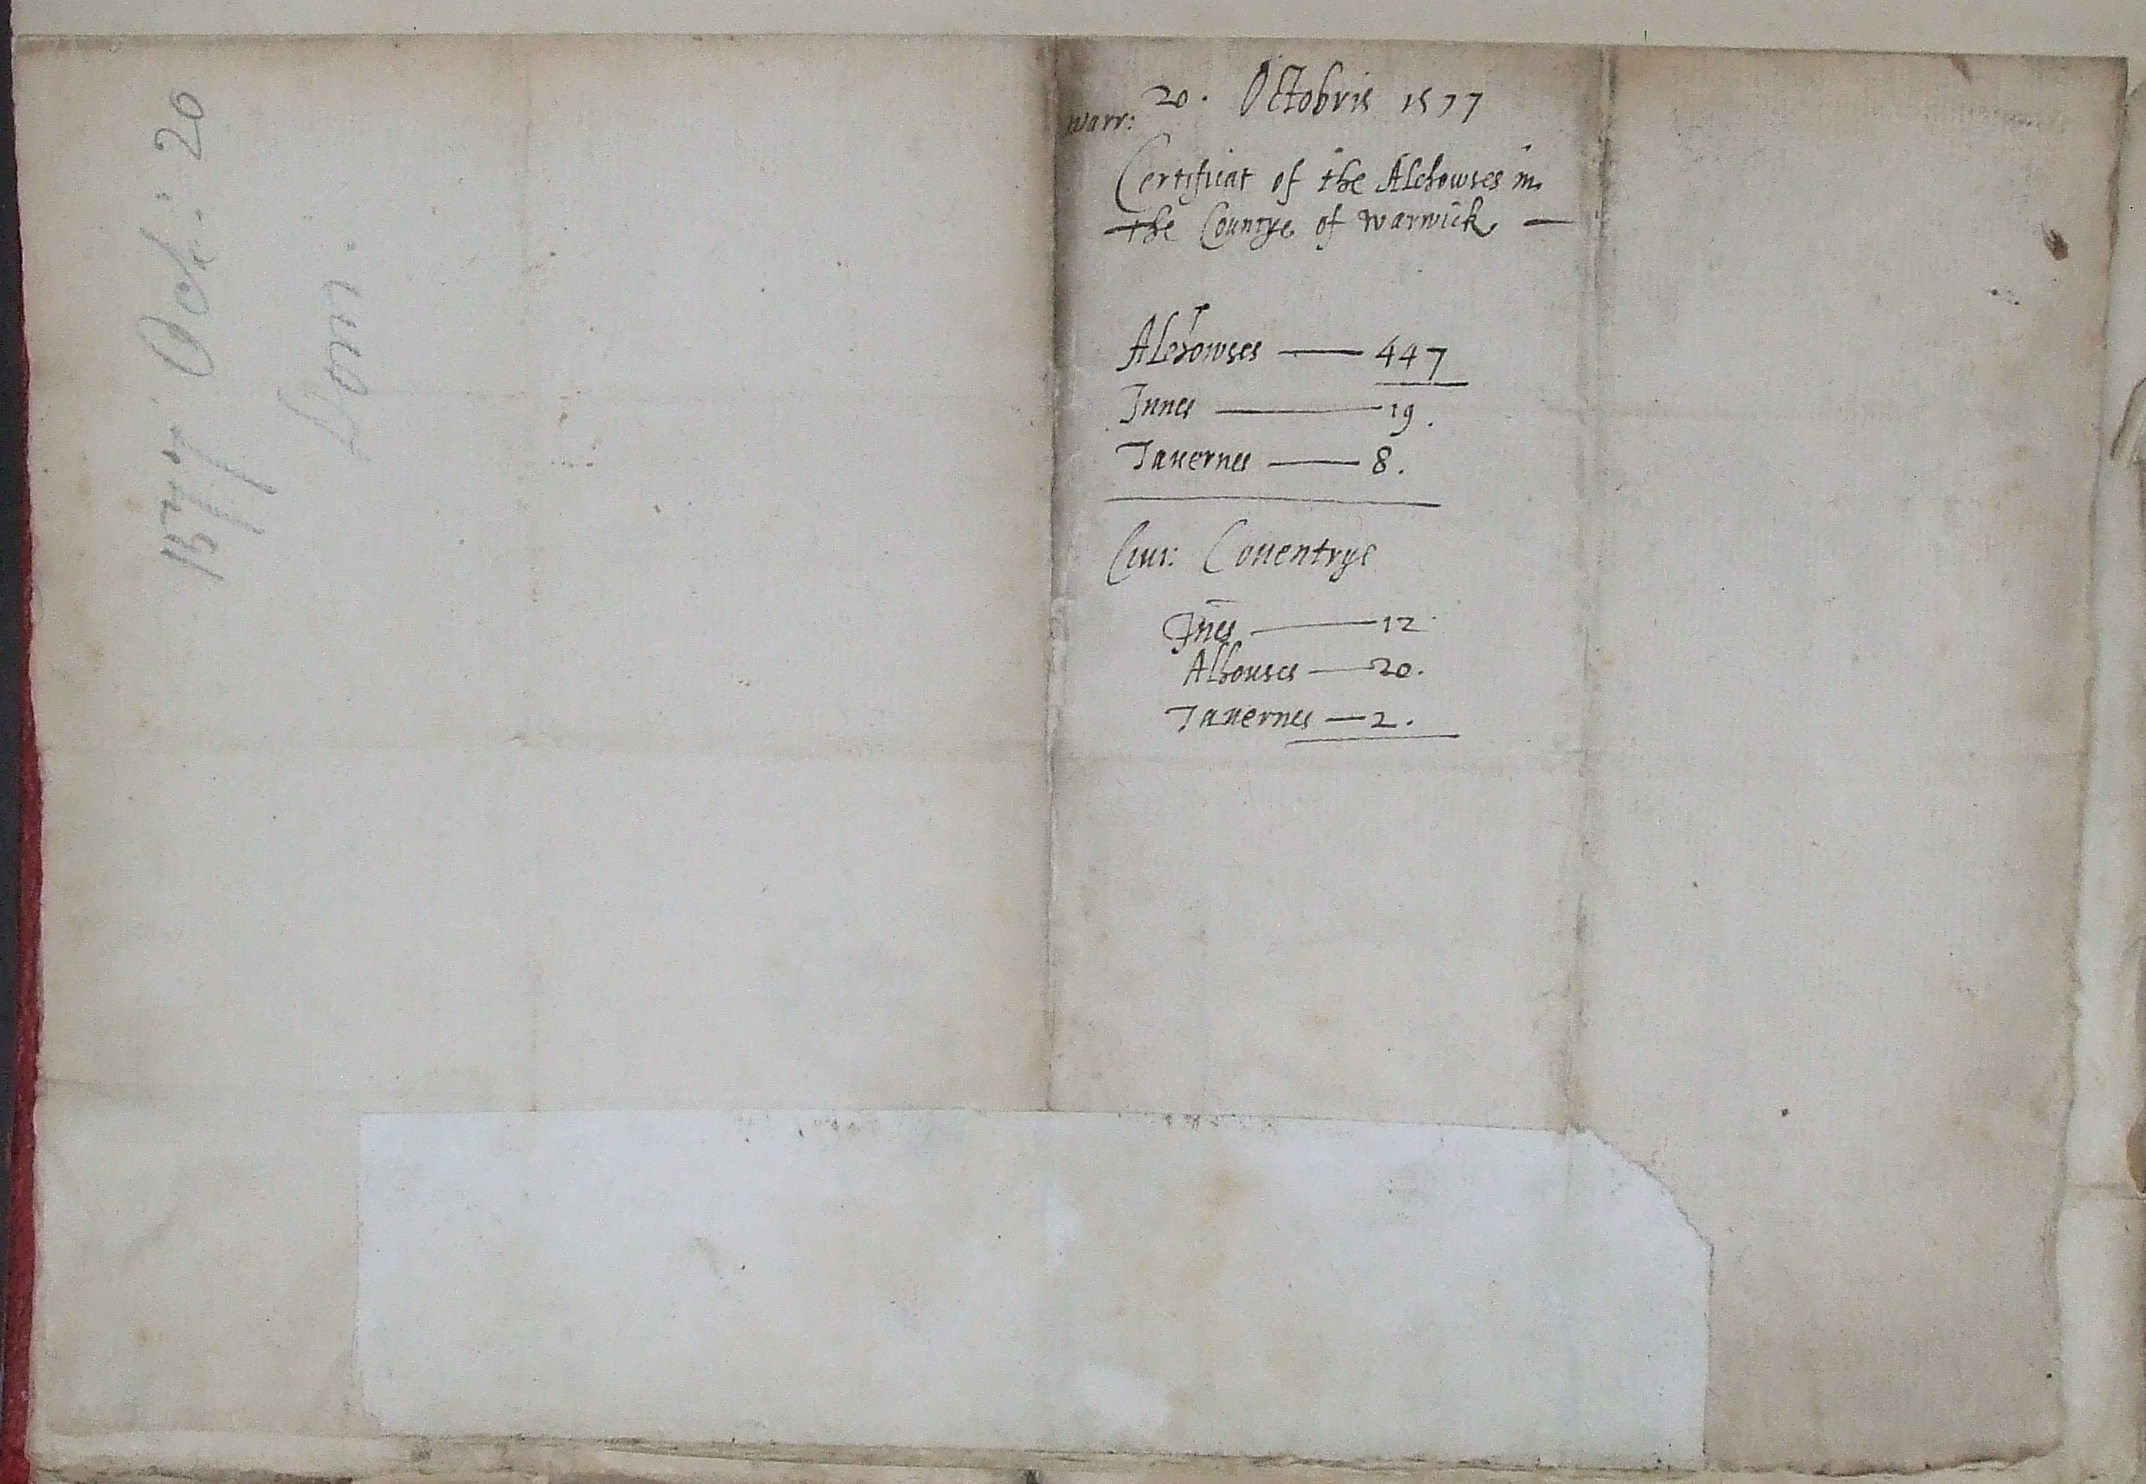 1577 Oct: 20
Dom.
20. Octobris 1577
warr:
Certificat of the Alehowses in
the Countye of warwick —
Alehowses — 447
Innes — 19.
Tauernes — 8.
Ciui: Couentrye
Ines — 12
Alhouses — 20.
Tauernes — 2.